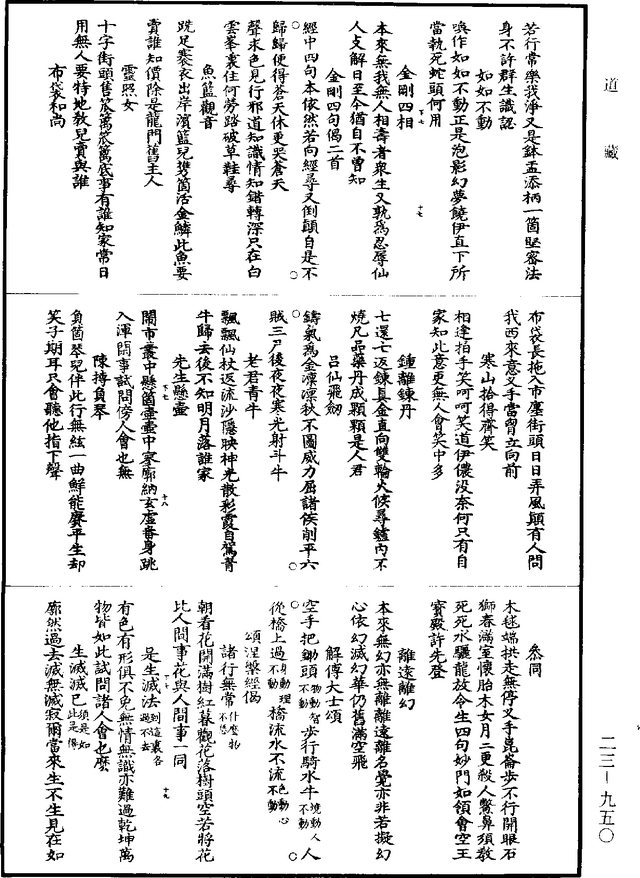 道藏
若行常樂我淨又是鉢盂添柄一箇堅密法
身不許群生識認
如如不動
喚作如如不動正是泡影幻夢饒伊直下所
當執死蛇頭何用
金剛四相
本來無我無人相壽者衆生又孰為忍辱仙
人攴解日至今猶自不曾知
金剛四句偈二首
經中四句本依然若向經尋又倒顛自是不
歸歸便得蒼天休更哭蒼天
聲求色見行邪道知識情知錯轉深只在白
雲峯裏住何勞踏破草鞋尋
魚籃觀音
跣足褰衣出岸濱籃兒携箇活金鱗此魚要
賣誰知價除是龍門舊主人
靈照女
十字街頭售笊篱笊篱底事有誰知家常日
用無人要特地教兒賣與誰
布袋和尚
布袋長拖入市廛街頭日日弄風顛有人問
我西來意叉手當胷立向前
寒山拾得齊笑
相逢拍手笑呵呵笑道伊儂没奈何只有自
家知此意更無人會笑中多
鍾離鍊丹
七還七返鍊真金直向雙輪火候尋鑪內不
燒凡品藥丹成顆顆是人君
呂仙飛劒
鑄氣為金凛凛秋不圖威力屈諸侯削平六
賊三尸後夜夜寒光射斗牛
老君青牛
飄飄仙杖返流沙隱映神光散彩霞自駕青
牛歸去後不知明月落誰家
先生懸壺
鬧市叢中懸箇壺壺中寥廓納玄虛番身跳
入渾閑事試問傍人會也無
陳摶負琴
負箇琴兒伴此行無絃一曲鮮能賡平生却
笑子期耳只會聽他指下聲
叅同
木毬端拱走無停叉手崑崙步不行開眼石
獅春滿室懷胎木女月二更殺人鱉鼻須教
死死水驪龍放令生四句妙門如領會空王
寶殿許先登
離遠離幻
本來無幻亦無離離遠離名覺亦非若擬幻
心依幻滅幻華仍舊滿空飛
解傅大士頌
空手把鋤頭物動智不動步行騎水牛境動人不動人
從橋上過身動理不動橋流水不流色動心不動
頌涅槃經偈
諸行無常什麼物不恁
朝看花開滿樹紅暮觀花落樹頭空若將花
比人間事花與人間事一同
是生滅法到這裏各迴不去
有色有形俱不免無情無識亦難過乾坤萬
物皆如此試問諸人會也麼
生滅滅已須是如此是得
廓然過去滅無滅寂爾當來生不生見在如
二三—九五〇